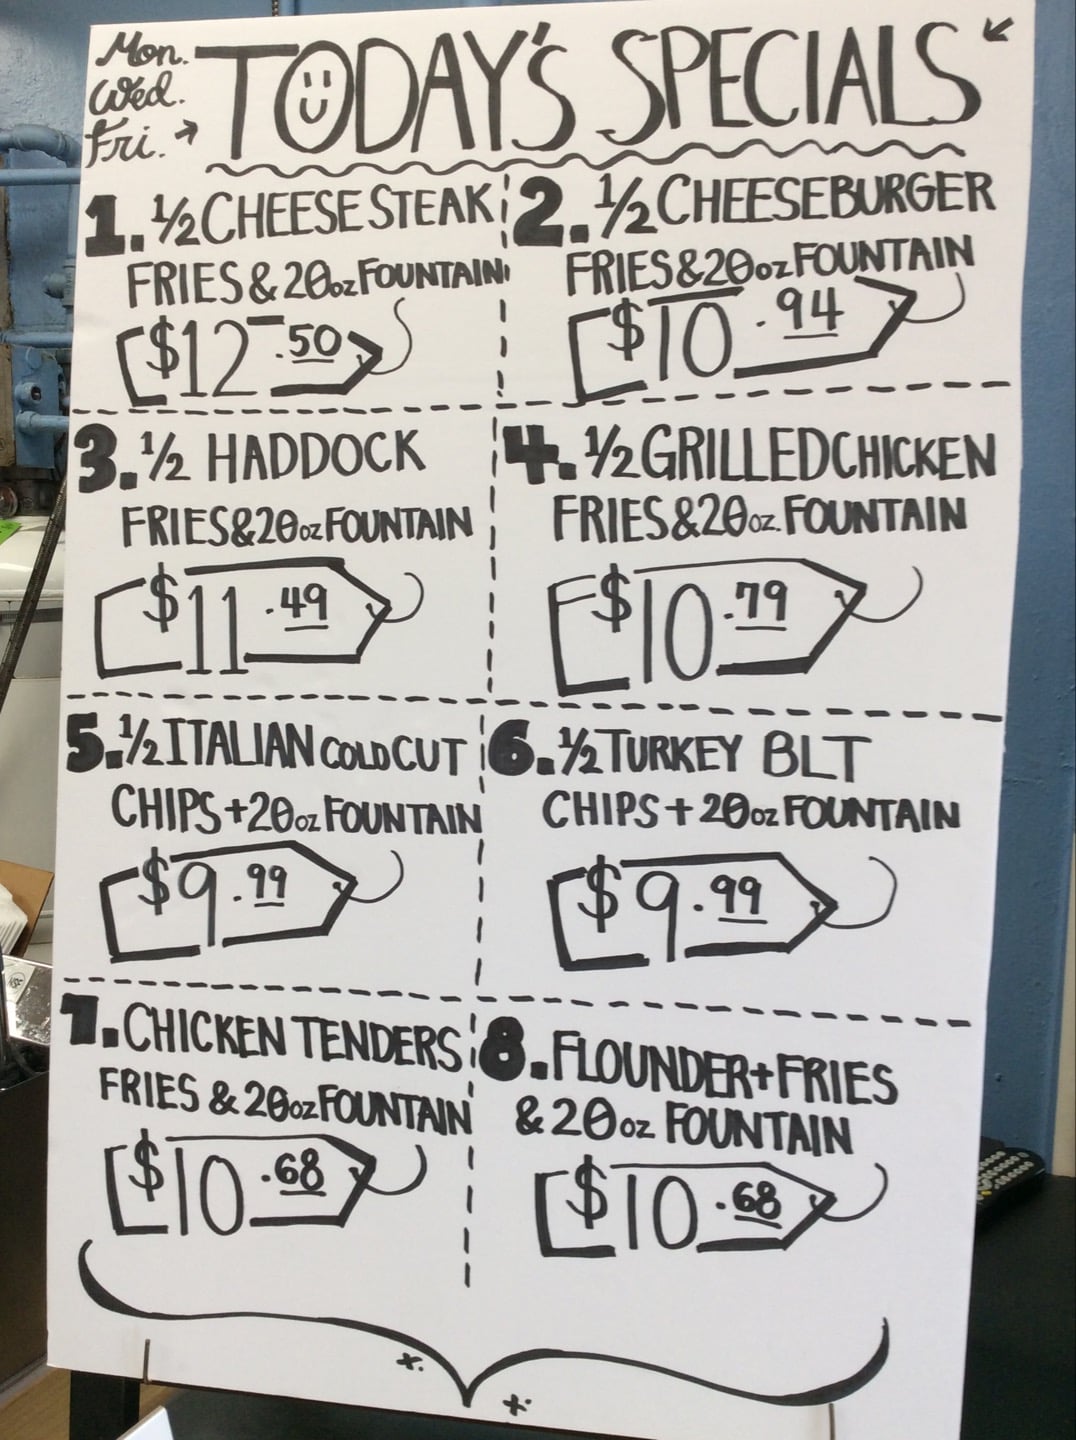 Mon.
Wed.
Fri. →
TODAY'S SPECIALS
1. ½ CHEESE STEAK
FRIES & 20oz FOUNTAIN
$12.50
2. ½ CHEESEBURGER
FRIES & 20oz FOUNTAIN
$10.94
3. ½ HADDOCK
FRIES & 20oz FOUNTAIN
$11.49
4. ½ GRILLED CHICKEN
FRIES & 20oz. FOUNTAIN
$10.79
5. ½ ITALIAN COLD CUT
CHIPS + 20oz FOUNTAIN
$9.99
6. ½ TURKEY BLT
CHIPS + 20oz FOUNTAIN
$9.99
7. CHICKEN TENDERS
FRIES & 20oz FOUNTAIN
$10.68
8. FLOUNDER + FRIES
& 20oz FOUNTAIN
$10.68